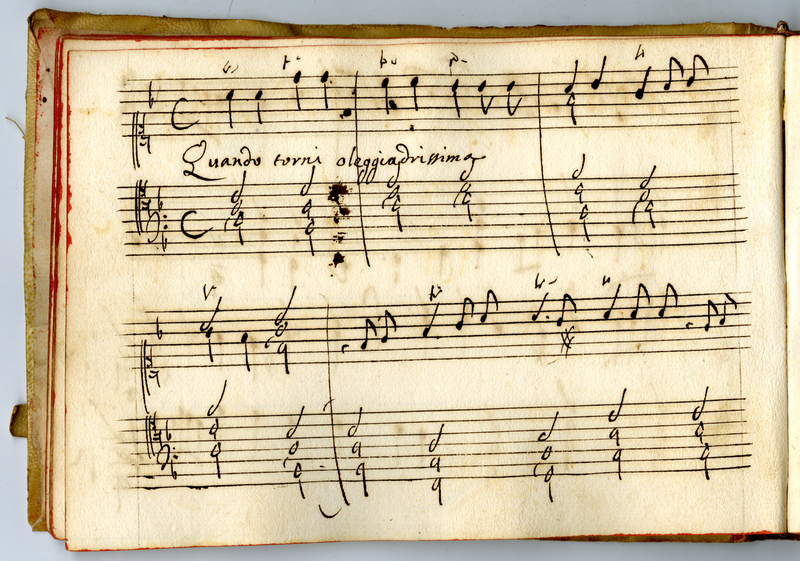 Quando torni oleggiadrissima